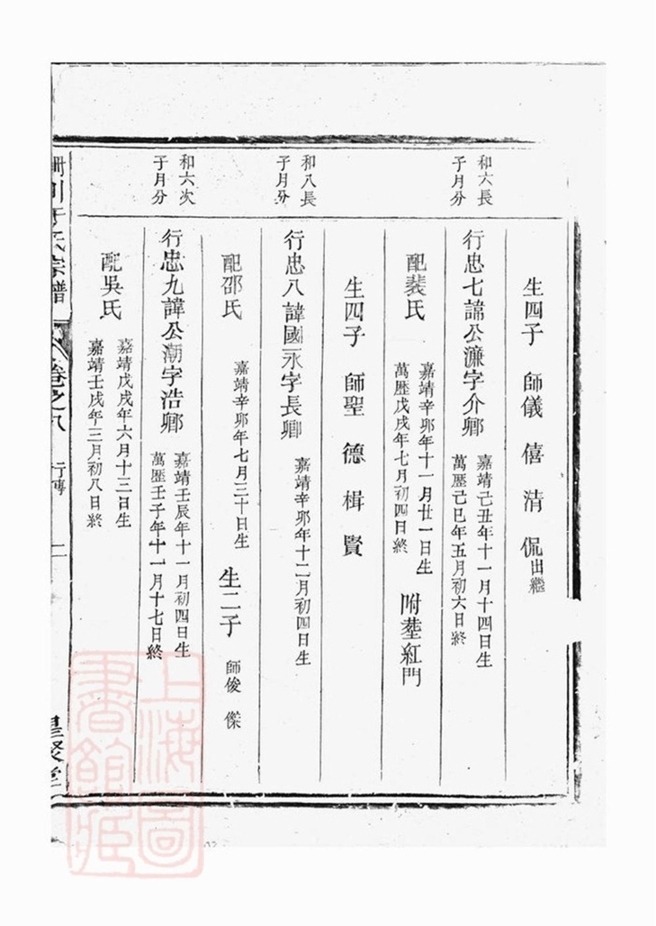 生四子 師儀 僖 清 侃出繼
和六長
子月分
行忠七諱公濂字介卿 嘉靖己丑年十一月十四日生
萬歷己巳年五月初六日終
配裴氏 嘉靖辛卯年十一月廿一日生
萬歷戊戌年七月初四日終 附塟紅門
生四子 師聖 德 楫 賢
和八長
子月分
行忠八諱國永字長卿 嘉靖辛卯年十二月初四日生
配邵氏 嘉靖辛卯年七月三十日生 生二子 師俊 傑
和六次
子月分
行忠九諱公潮字浩卿 嘉靖壬辰年十一月初四日生
萬歷壬子年十一月十七日終
配吳氏 嘉靖戊戌年六月十三日生
嘉靖壬戌年三月初八日終
川 氏宗譜 卷之八 行傳 聚堂
上海圖
書館藏